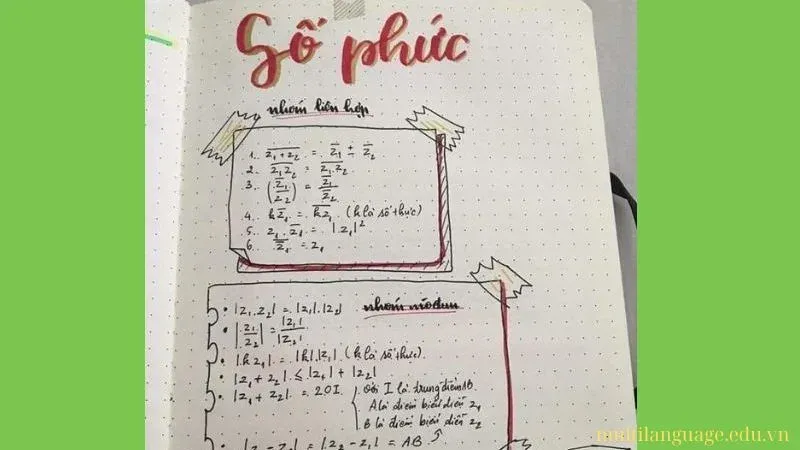 Số phức
nhóm liên hợp
1. \overline{z₁ + z₂} = \overline{z}₁ ± \overline{z}₂
2. \overline{z₁ z₂} = \overline{z₁}.\overline{z₂}
3. (\overline{z₁/z₂}) = \overline{z₁}/\overline{z₂}
4. k\overline{z₁} = \overline{kz₁} (k là số thực)
5. z₁.\overline{z₁} = |z₁|²
6. \overline{\overline{z₁}} = z₁
nhóm môđun
• |z₁.z₂| = |z₁|.|z₂|
• |z₁/z₂| = |z₁|/|z₂|
• |k z₁| = |k|.|z₁| (k là số thực)
• |z₁ + z₂| ≤ |z₁| + |z₂|
• |z₁ + z₂| = 2OI. với I là trung điểm AB
A là điểm biểu diễn z₁
B là điểm biểu diễn z₂
• |z₁ - z₂| = |z₂ - z₁| = AB
multilanguage.edu.vn